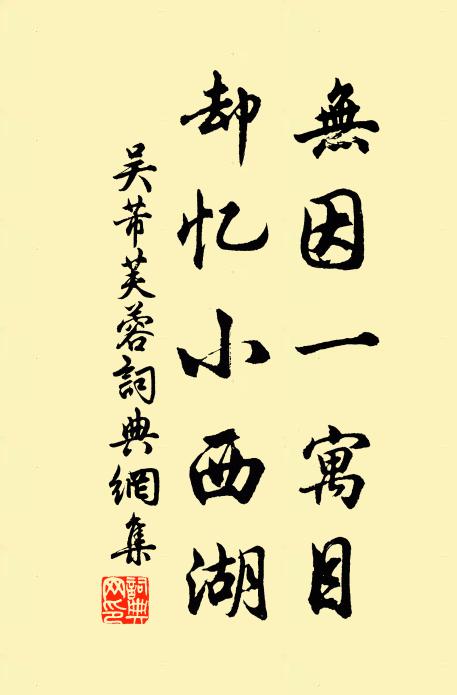 無因一寓目
却忆小西湖
吴芾芙蓉詞典網集